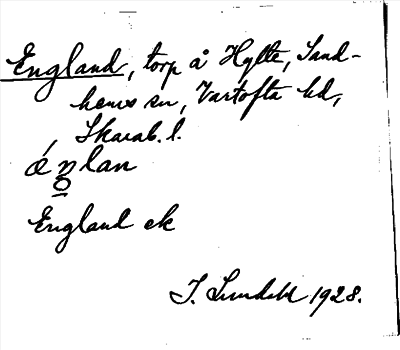 England, torp å Hylte, Sand-
hems sn, Vartofta hd,
Skarab. l.
England ek
1928.